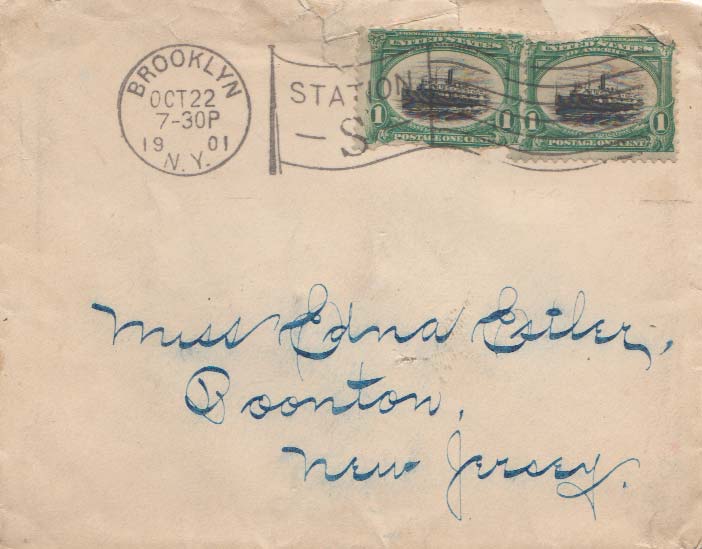 BROOKLYN
OCT 22
7-30P
19 01
N.Y.
STATION
- S
UNITED STATES
OF AMERICA
1 1
POSTAGE ONE CENT
UNITED STATES
OF AMERICA
1
POSTAGE ONE CENT
Miss Edna Estler,
Boonton,
New Jersey.